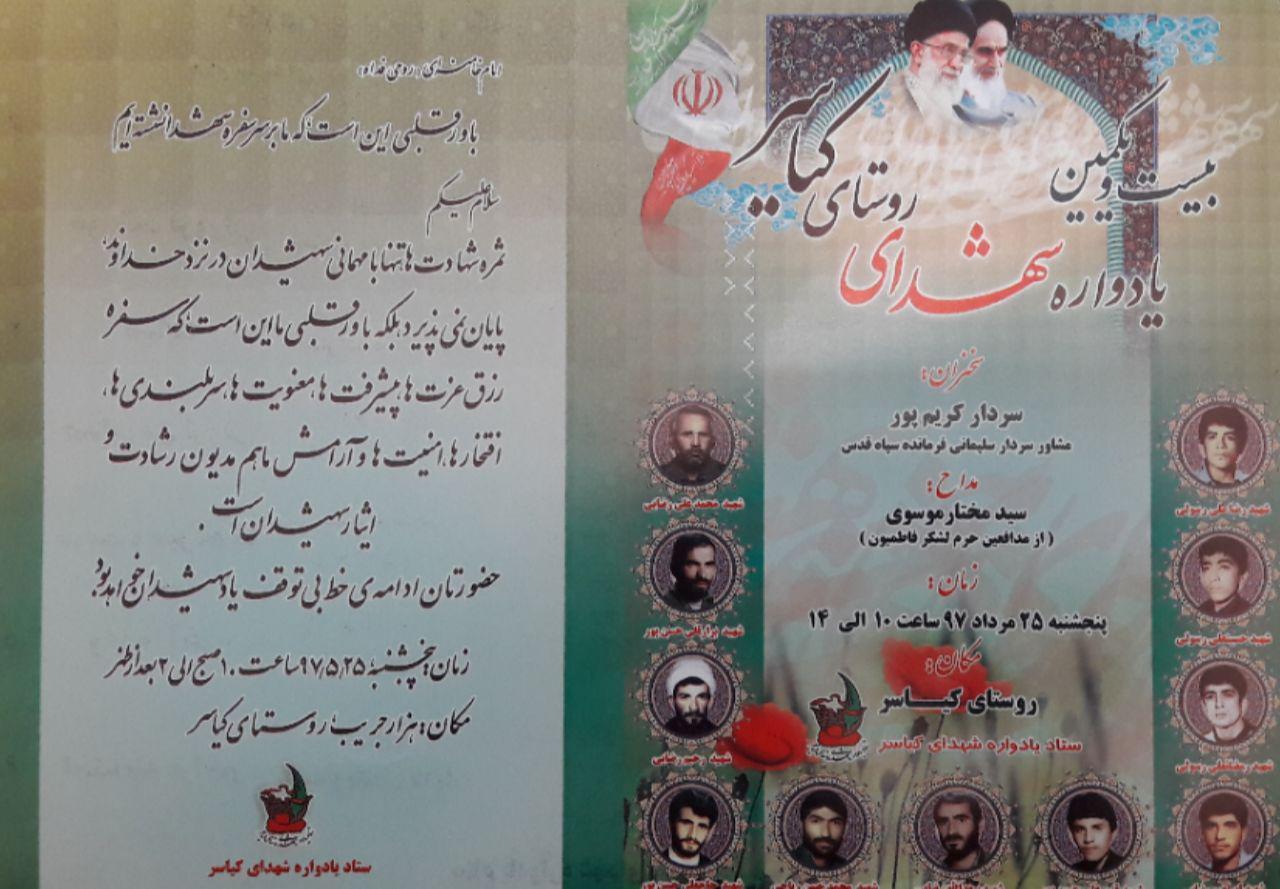 بیست و یکمین
یادواره شهدای
روستای کیاسر
سخنران:
سردار کریم پور
مشاور سردار سلیمانی فرمانده سپاه قدس
مداح:
سید مختار موسوی
( از مدافعین حرم لشکر فاطمیون )
زمان:
پنجشنبه ۲۵ مرداد ۹۷ ساعت ۱۰ الی ۱۴
مکان:
روستای کیاسر
ستاد یادواره شهدای کیاسر
شهید رضا علی رسولی
شهید حسنعلی رسولی
شهید رمضانعلی رسولی
شهید محمد علی رضایی
شهید براتعلی حسن پور
شهید رجب رضایی
امام خامنه ای (روحی فداه)
باور قلبی این است که ما بر سر سفره شهدا نشسته ایم
سلام علیکم
ثمره شهادت ها تنها با مهمانی شهیدان در نزد خداوند،
پایان نمی پذیرد بلکه باور قلبی ما این است که سفره
رزق عزت ها، پیشرفت ها، معنویت ها، سربلندی ها،
افتخارها، امنیت ها و آرامش ما هم مدیون رشادت و
ایثار شهیدان است.
حضورتان ادامه ی خط بی توقف یاد شهیدان خواهد بود.
زمان: پنجشنبه ۹۷/۵/۲۵ ساعت ۱۰ صبح الی ۲ بعد از ظهر
مکان: هزار جریب، روستای کیاسر
ستاد یادواره شهدای کیاسر